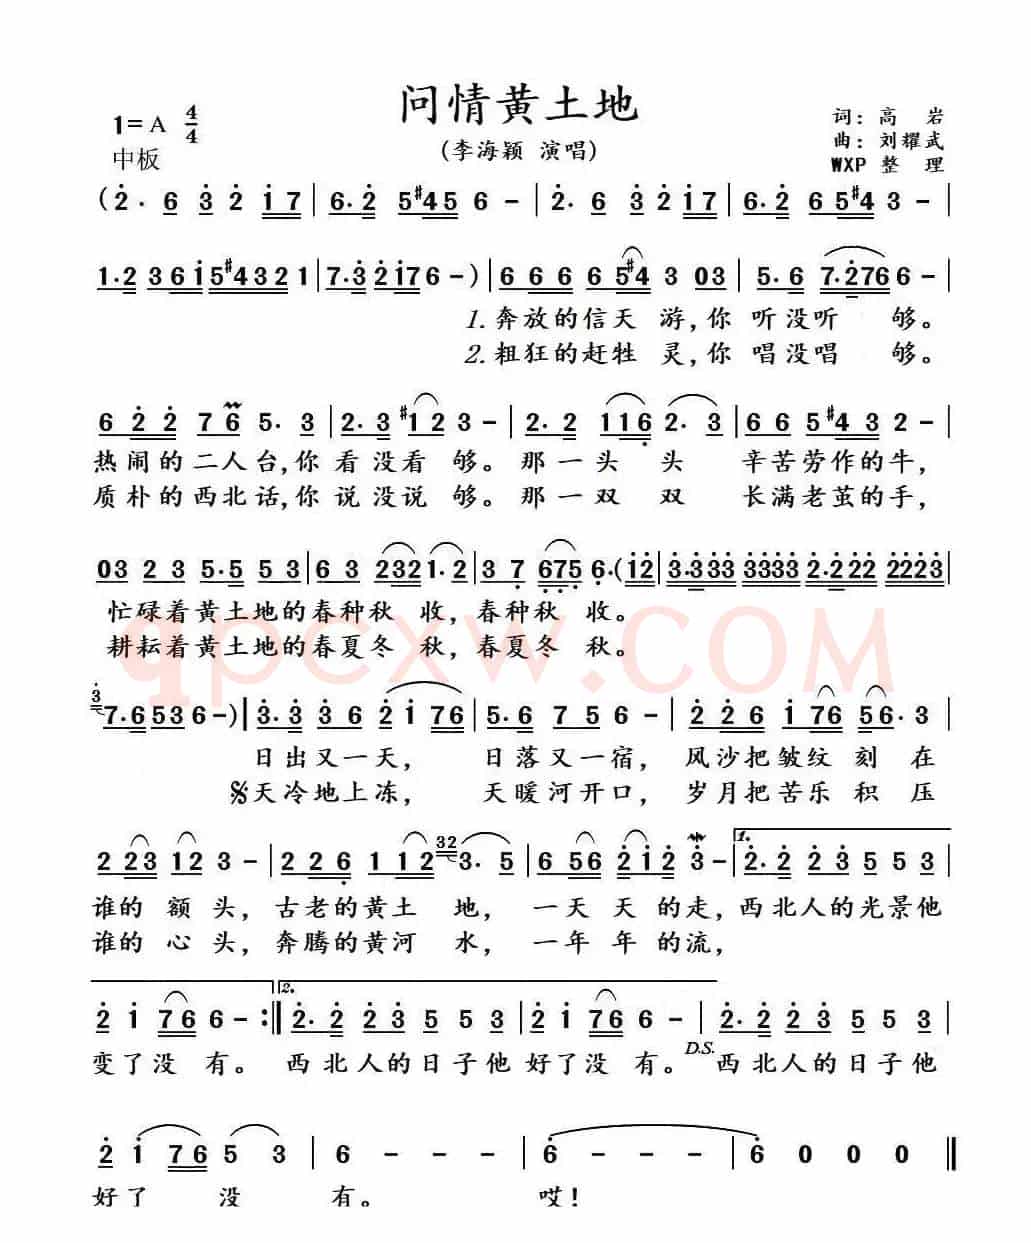 问情黄土地
1=A 4/4
中板
(李海颖 演唱)
词：高 岩
曲：刘耀武
WXP 整 理
(2· 6 3 2 1 7 | 6·2 5#45 6 - | 2· 6 3 2 1 7 | 6·2 6 5#4 3 - |
1·2 3 6 1 5#4 3 2 1 | 7·3 2 1 7 6 -) | 6 6 6 6 5#4 3 0 3 | 5·6 7·2 7 6 6 - |
1.奔放的信天 游,你 听没听 够。
2.粗狂的赶牲 灵,你 唱没唱 够。
6 2 2 7 6 5· 3 | 2·3 #1 2 3 - | 2·2 1 1 6 2· 3 | 6 6 5#4 3 2 - |
热闹的二人台,你 看没看 够。那一头 头 辛苦劳作的牛,
质朴的西北话,你 说没说 够。那一双 双 长满老茧的手,
0 3 2 3 5·5 5 3 | 6 3 2 3 2 1·2 | 3 7 6 7 5 6·(1 2 | 3·3 3 3 3 3 3 3 2·2 2 2 2 2 2 3 |
忙碌着黄土地的春种秋 收, 春种秋 收。
耕耘着黄土地的春夏冬 秋, 春夏冬 秋。
qpcxw.COM
3 7·6 5 3 6 -) | 3·3 3 6 2 1 7 6 | 5·6 7 5 6 - | 2 2 6 1 7 6 5 6· 3 |
日出又一天, 日落又一宿, 风沙把皱纹 刻 在
𝄋天冷地上冻, 天暖河开口, 岁月把苦乐 积 压
2 2 3 1 2 3 - | 2 2 6 1 1 2 32 3· 5 | 6 5 6 2 1 2 3 - | 1. 2·2 2 3 5 5 3 |
谁的 额 头, 古老的黄土 地, 一天 天 的走, 西北人的光景他
谁的 心 头, 奔腾的黄河 水, 一年 年 的流,
2 1 7 6 6 - :| 2. 2·2 2 3 5 5 3 | 2 1 7 6 6 - | 2·2 2 3 5 5 3 |
变了没 有。 西北人的日子他 好了没 有。D.S.西北人的日子他
2 1 7 6 5 3 | 6 - - - | 6 - - - | 6 0 0 0 ‖
好了 没 有。 哎!